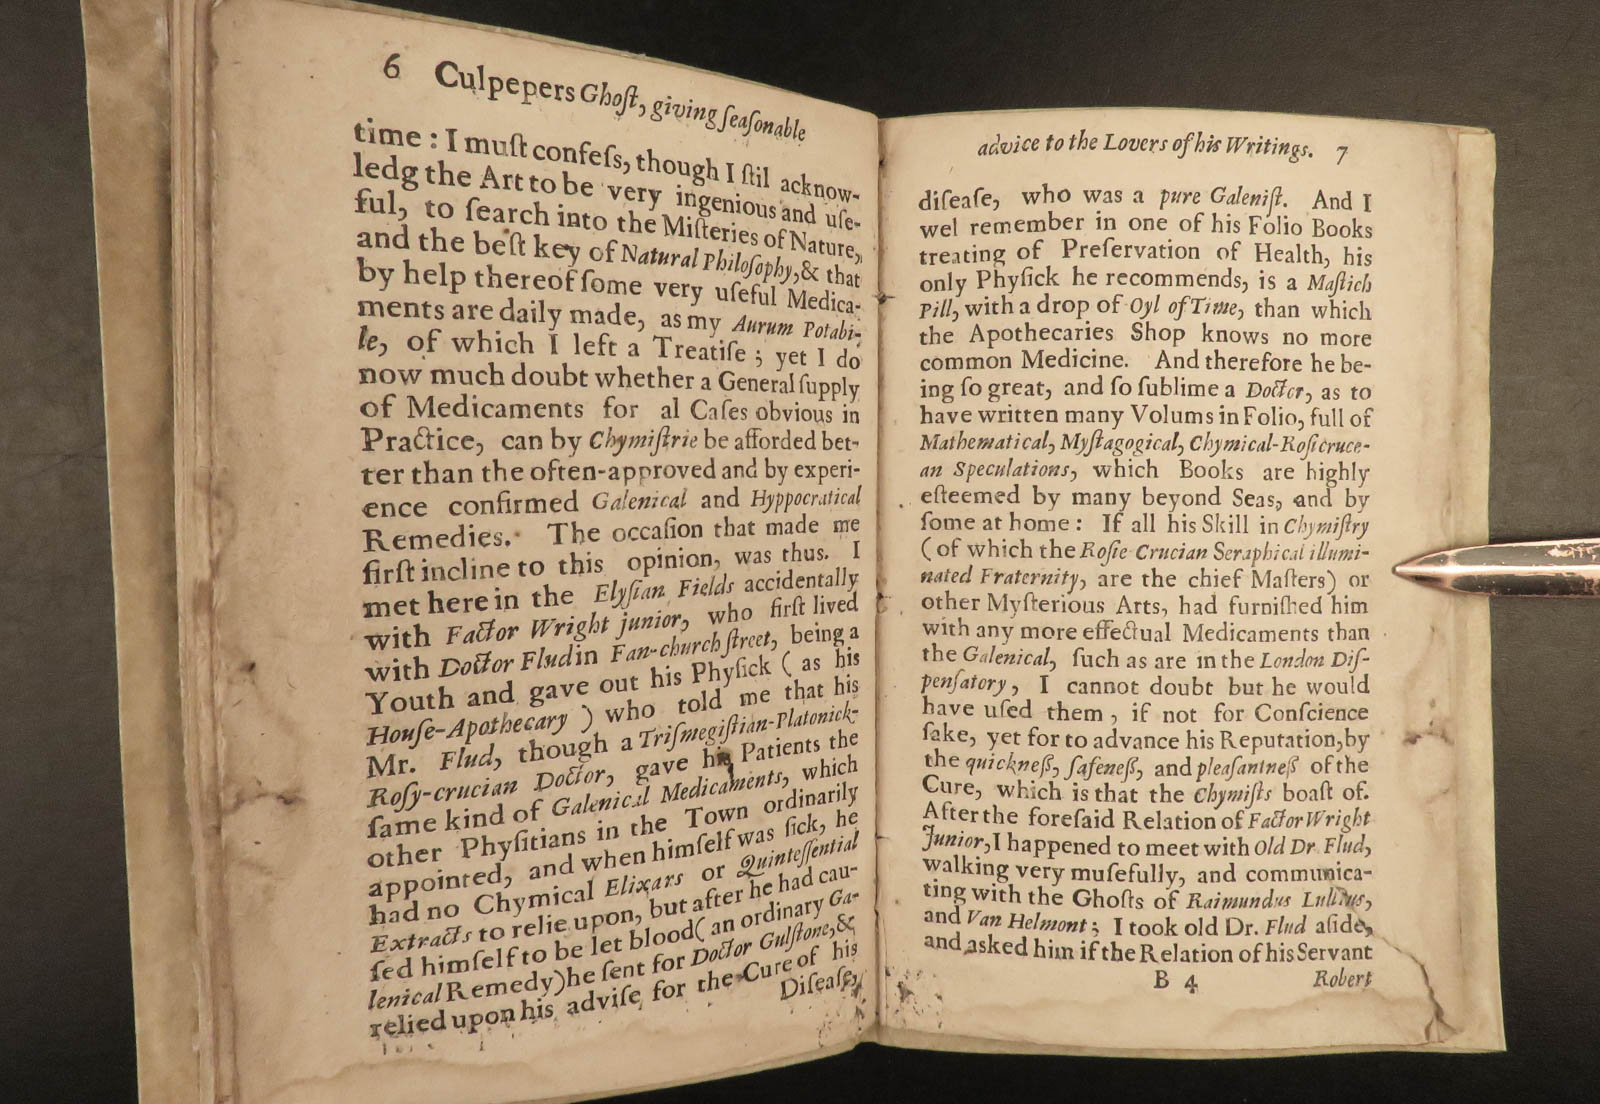 6 Culpepers Ghoſt, giving ſeaſonable
time : I muſt confeſs, though I ſtil acknow-
ledg the Art to be very ingenious and uſe-
ful, to ſearch into the Miſteries of Nature,
and the beſt key of Natural Philoſophy, & that
by help thereof ſome very uſeful Medica-
ments are daily made, as my Aurum Potabi-
le, of which I left a Treatiſe ; yet I do
now much doubt whether a General ſupply
of Medicaments for al Caſes obvious in
Practice, can by Chymiſtrie be afforded bet-
ter than the often-approved and by experi-
ence confirmed Galenical and Hyppocratical
Remedies. The occaſion that made me
firſt incline to this opinion, was thus. I
met here in the Elyſian Fields accidentally
with Factor Wright junior, who firſt lived
with Doctor Flud in Fan-church ſtreet, being a
Youth and gave out his Phyſick ( as his
Houſe-Apothecary ) who told me that his
Mr. Flud, though a Triſmegiſtian-Platonick-
Roſy-crucian Doctor, gave his Patients the
ſame kind of Galenical Medicaments, which
other Phyſitians in the Town ordinarily
appointed, and when himſelf was ſick, he
had no Chymical Elixars or Quinteſſential
Extracts to relie upon, but after he had cau-
ſed himſelf to be let blood ( an ordinary Ga-
lenical Remedy) he ſent for Doctor Gulſtone, &
relied upon his adviſe for the Cure of his
Diſeaſe,
advice to the Lovers of his Writings. 7
diſeaſe, who was a pure Galeniſt. And I
wel remember in one of his Folio Books
treating of Preſervation of Health, his
only Phyſick he recommends, is a Maſtich
Pill, with a drop of Oyl of Time, than which
the Apothecaries Shop knows no more
common Medicine. And therefore he be-
ing ſo great, and ſo ſublime a Doctor, as to
have written many Volums in Folio, full of
Mathematical, Myſtagogical, Chymical-Roſicruce-
an Speculations, which Books are highly
eſteemed by many beyond Seas, and by
ſome at home : If all his Skill in Chymiſtry
( of which the Roſie-Crucian Seraphical illumi-
nated Fraternity, are the chief Maſters) or
other Myſterious Arts, had furniſhed him
with any more effectual Medicaments than
the Galenical, ſuch as are in the London Diſ-
penſatory, I cannot doubt but he would
have uſed them, if not for Conſcience
ſake, yet for to advance his Reputation, by
the quickneß, ſafeneß, and pleaſantneß of the
Cure, which is that the Chymiſts boaſt of.
After the foreſaid Relation of Factor Wright
Junior, I happened to meet with Old Dr. Flud,
walking very muſefully, and communica-
ting with the Ghoſts of Raimundus Lullius,
and Van Helmont ; I took old Dr. Flud aſide,
and asked him if the Relation of his Servant
B 4 Robert